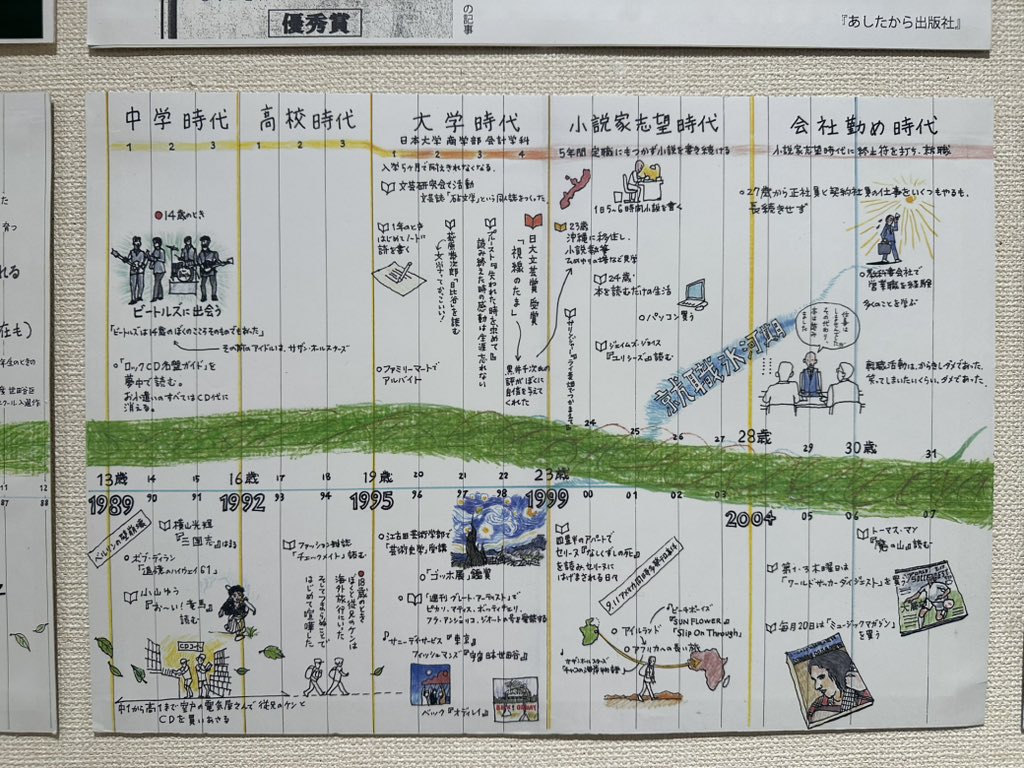 優秀賞
の記事
『あしたから出版社』
中学時代
高校時代
大学時代
小説家志望時代
会社勤め時代
1 2 3
1 2 3
日本大学 商学部 会計学科
1 2 3 4
5年間 定職にもつかず小説を書き続ける
小説家志望時代に終止符を打ち、就職
14歳のとき
ビートルズに出会う
「ビートルズは14歳のぼくのこころそのものでもあった」
その前のアイドルは、サザンオールスターズ
「ロックCD名盤ガイド」を
夢中で読む。
お小遣いのすべてはCD代に
消える。
文芸研究会で活動
1年のとき
はじめてノートに
詩を書く
萩原恭次郎『日比谷』を読む
プルースト『失われた時を求めて』
読み終えた時の感動は生涯忘れない
日大文芸賞 受賞
「視線のたま」
黒井千次氏の
評がぼくに
自信を与えて
くれた
ファミリーマートで
アルバイト
1日5~6時間小説を書く
23歳
沖縄に移住し、
小説執筆
ひめゆりの塔など見学
24歳
本を読むだけの生活
パソコン買う
ジェイムズ・ジョイス
『ユリシーズ』読む
サリンジャー『ライ麦畑でつかまえて』
就職氷河期
27歳から正社員と契約社員の仕事をいくつもやるも、
長続きせず
教科書会社で
営業職を経験
多くのことを学ぶ
就職活動は、からきしダメであった。
笑ってしまいたいくらい、ダメであった
13歳 16歳 19歳 20 21 22 23歳 24 25 26 27 28歳 29 30歳 31
1989 90 91 1992 93 94 1995 96 97 98 1999 00 01 02 03 2004 05 06 07
ベルリンの壁崩壊
横山光輝
『三国志』はまる
ボブ・ディラン
『追憶のハイウェイ61』
小山ゆう
『おーい!竜馬』
読む
CDコーナー
中1から高1まで室戸の電気屋さんで従兄のケンと
CDを買いあさる
ファッション雑誌
「チェックメイト」読む
18歳のとき
ほとんど従兄のケンは
海外旅行にいった
そしてつまらぬことで
はじめて喧嘩した
江古田芸術学部で
「芸術史学」受講
「ゴッホ展」鑑賞
「週刊グレート・アーティスト」で
ピカソ、マティス、ボッティチェリ、
フラ・アンジェリコ、ジオットの本を愛読する
サニーデイサービス『東京』
フィッシュマンズ『宇宙 日本 世田谷』
ベック『オディレイ』
四畳半のアパートで
セリーヌ『なしくずしの死』
を読み、セリーヌに
はげまされる日々
9.11アメリカ同時多発テロ事件
アイルランド
アフリカへの長い旅
ビーチボーイズ
『SUN FLOWER』
「Slip On Through」
サザンオールスターズ
『チャコの海岸物語』
トーマス・マン
『魔の山』読む
第1・3木曜日は
『ワールドサッカーダイジェスト』を買う
毎月20日は『ミュージックマガジン』
を買う
11 12
87 88